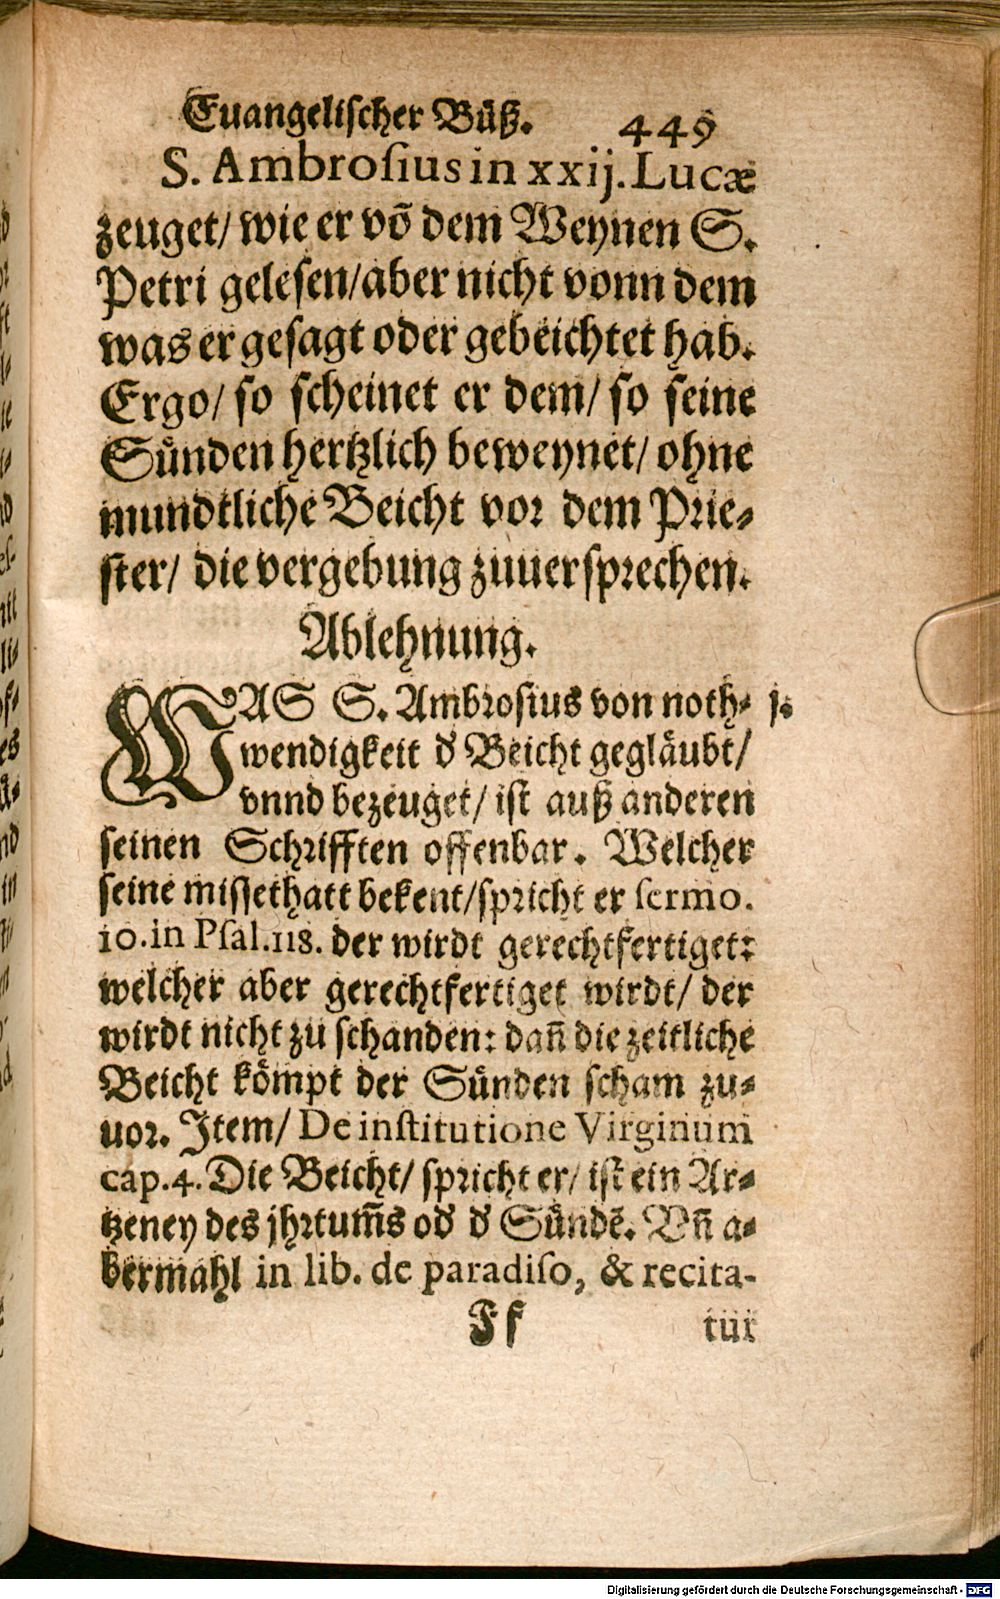 Euangelischer Büß. 449
S. Ambrosius in xxij. Lucæ
zeuget/ wie er võ dem Weynen S.
Petri gelesen/aber nicht vonn dem
was er gesagt oder gebeichtet hab.
Ergo/ so scheinet er dem/ so seine
Sünden hertzlich beweynet/ ohne
mundtliche Beicht vor dem Prie-
ster/ die vergebung zuuersprechen.
Ablehnung.
WAS S. Ambrosius von noth- j.
wendigkeit d' Beicht gegläubt/
vnnd bezeuget/ ist auß anderen
seinen Schrifften offenbar. Welcher
seine missethatt bekent/spricht er sermo.
10. in Psal. 118. der wirdt gerechtfertiget:
welcher aber gerechtfertiget wirdt/ der
wirdt nicht zu schanden: dañ die zeitliche
Beicht kömpt der Sünden scham zu-
uor. Item/ De institutione Virginum
cap. 4. Die Beicht/ spricht er/ ist ein Ar-
tzeney des jhrtum̃s od' d' Sündẽ. Vñ a-
bermahl in lib. de paradiso, & recita-
Ff tur
Digitalisierung gefördert durch die Deutsche Forschungsgemeinschaft - DFG